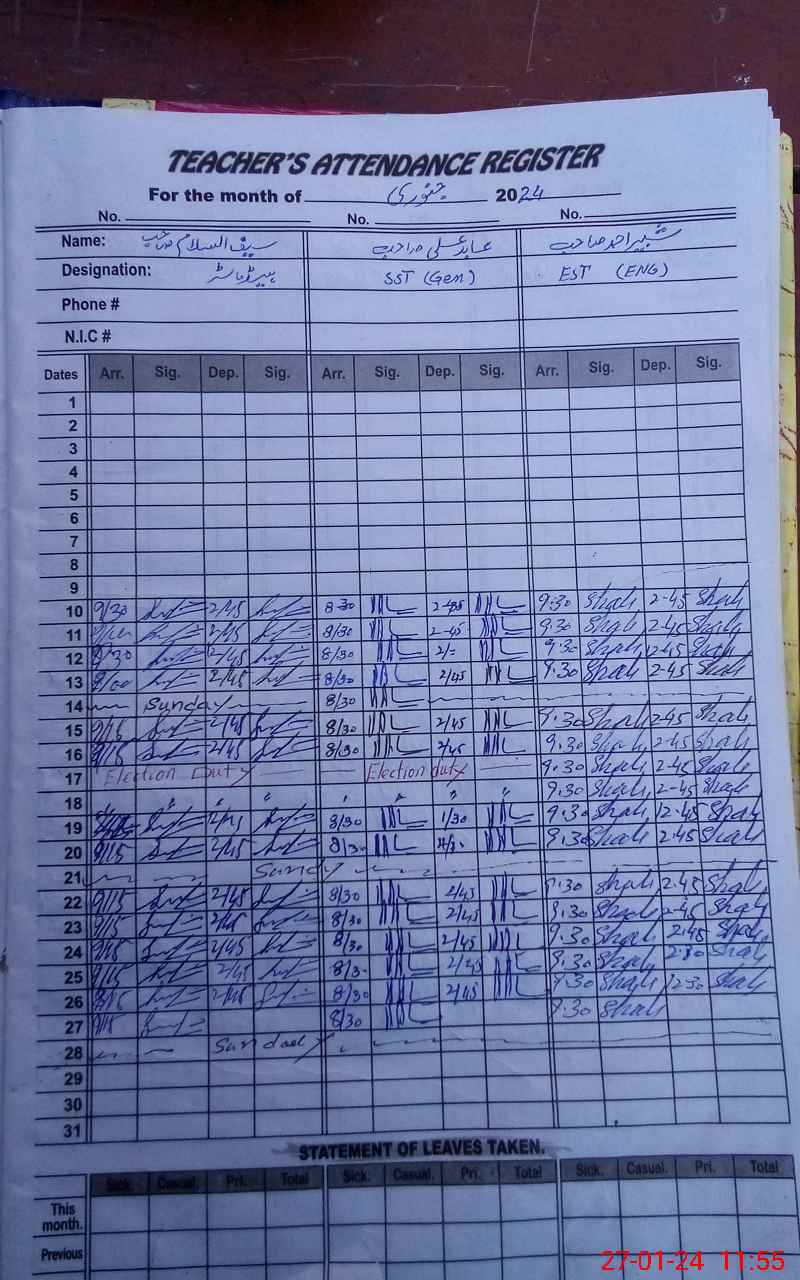 TEACHER'S ATTENDANCE REGISTER
For the month of جنوری 2024
No. No. No.
Name: سیف السلام صاحب عابد علی صاحب شبیر احمد صاحب
Designation: ہیڈماسٹر SST (Gen) EST (ENG)
Phone #
N.I.C #
Dates Arr. Sig. Dep. Sig. Arr. Sig. Dep. Sig. Arr. Sig. Dep. Sig.
1
2
3
4
5
6
7
8
9
10 9/30 2/45 8-30 2-45 9:30 Shah 2-45 Shah
11 2/45 8/30 2-45 9:30 Shah 2-45 Shah
12 2/45 8/30 9:30 Shah 2-45 Shah
13 9/00 2/45 8/30 2/45 9:30 Shah 2-45 Shah
14 Sunday 8/30
15 9/15 2/45 8/30 2/45 9:30 Shah 2-45 Shah
16 9/15 2/45 8/30 2/45 9:30 Shah 2-45 Shah
17 Election Duty Election duty 9:30 Shah 2-45 Shah
18 " " " " " " " 9:30 Shah 2-45 Shah
19 8/30 1/30 9:30 Shah 12-45 Shah
20 9/15 2/45 8/30 9:30 Shah 2-45 Shah
21 Sunday
22 9/15 2/45 8/30 2/45 9:30 Shah 2-45 Shah
23 9/15 2/45 8/30 2/45 9:30 Shah 2-45 Shah
24 9/15 2/45 8/30 2/45 9:30 Shah 2-45 Shah
25 9/15 2/45 8/30 2/45 9:30 Shah 2-30 Shah
26 2/45 8/30 2/45 9:30 Shah 12-30 Shah
27 9/15 8/30 9:30 Shah
28 Sunday
29
30
31
STATEMENT OF LEAVES TAKEN.
Sick. Casual. Pri. Total Sick. Casual. Pri. Total Sick. Casual. Pri. Total
This month.
Previous
27-01-24 11:55